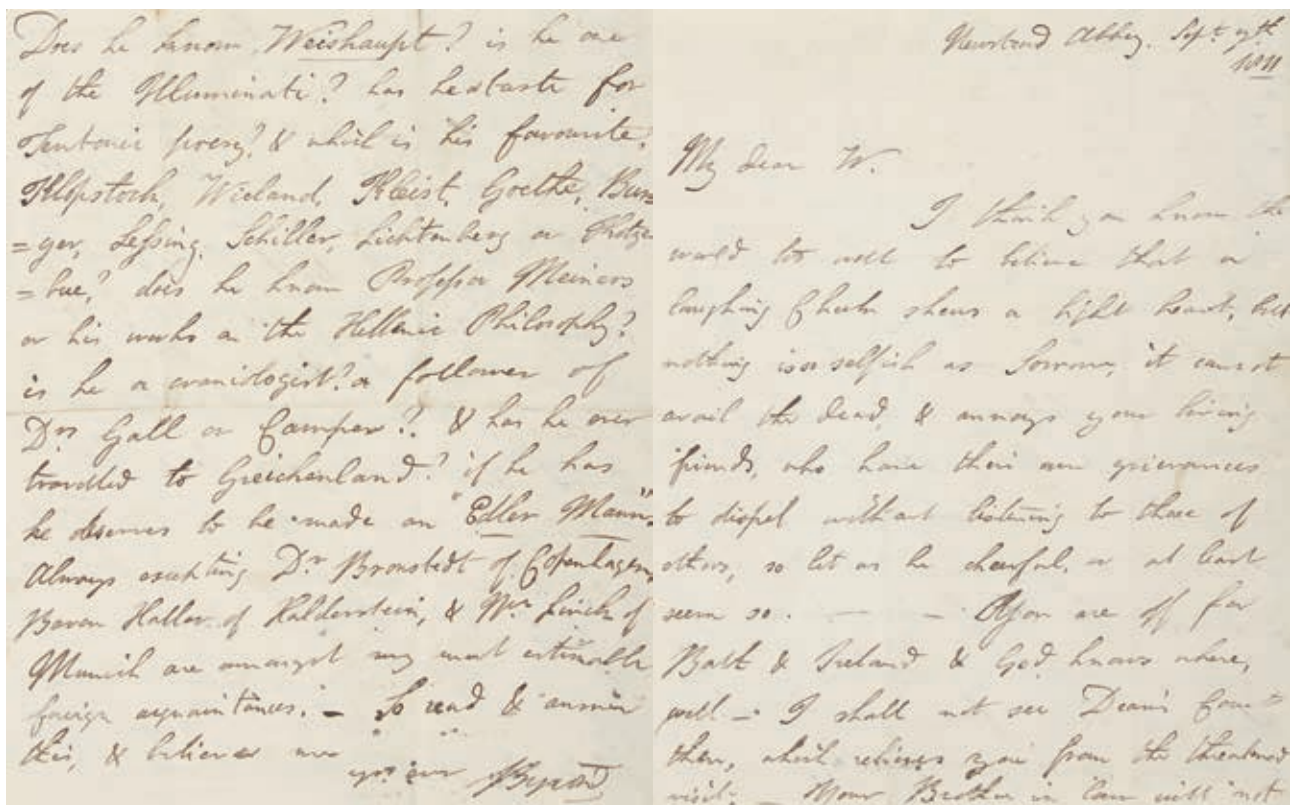 Does he know Weishaupt? is he one
of the Illuminati? has he a taste for
Teutonic poesy? & which is his favourite,
Klopstock, Wieland, Kleist, Goethe, Bur=
=ger, Lessing, Schiller, Lichtenberg or Kotze
=bue? does he know Professor Meiners
or his works on the Hellenic Philosophy?
is he a craniologist? a follower of
Drs Gall or Camper? & has he ever
travelled to Greichenland? if he has
he deserves to be made an "Edler Mann".
Always excepting Dr Bronstedt of Copenhagen,
Baron Haller of Halderstein, & Mr Linckh of
Munich are amongst my most estimable
foreign acquaintances. — So read & answer
this, & believe me
yrs ever Byron
Newstead Abbey. Sept.
1811
My dear W.
I think you know the
world too well to believe that a
laughing cheek shews a light heart, but
nothing is so selfish as Sorrow, it cannot
avail the dead, & annoys your living
friends, who have their own grievances
to dispel without listening to those of
others, so let us be cheerful, or at least
seem so. — — You are off for
Bath & Ireland & God knows where,
well — I shall not see Dean's Court
then, which relieves you from the threatened
visit. — Your Brother in law will not